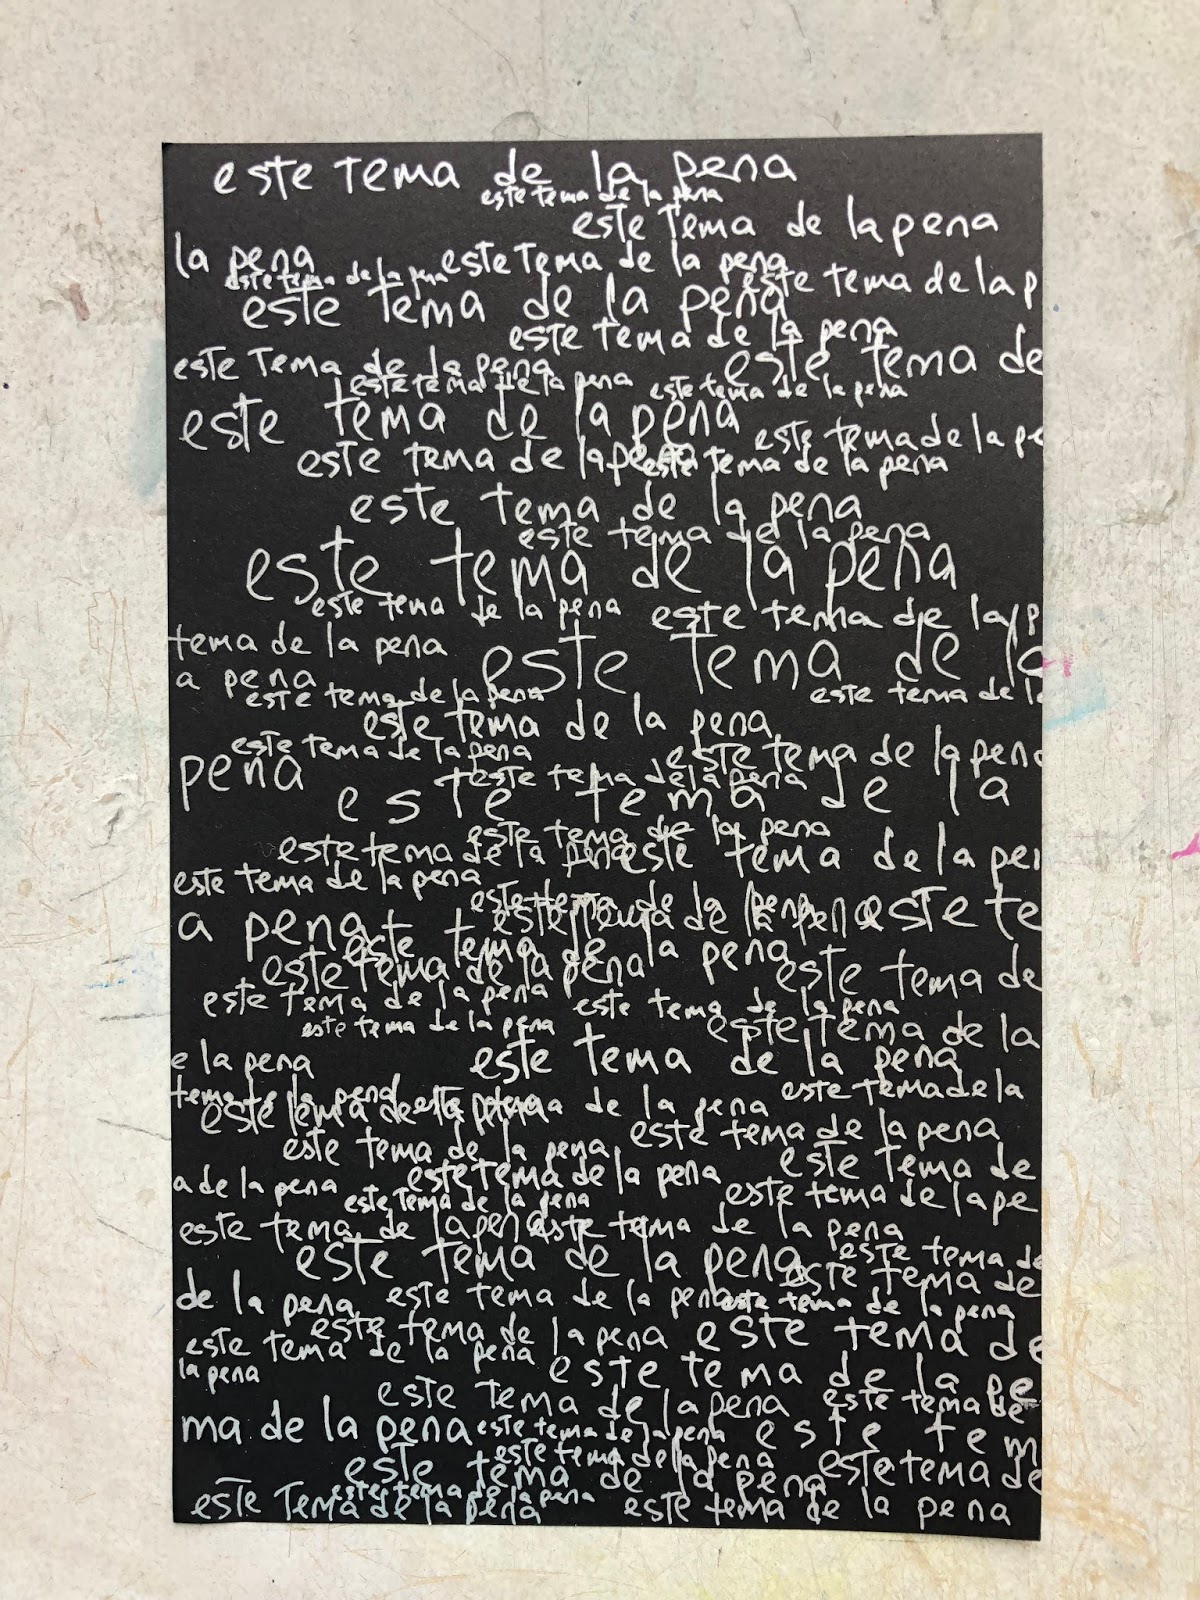 este tema de la pena
este tema de la pena
este tema de la pena
la pena este tema de la pena
este tema de la pena este tema de la p
este tema de la pena
este tema de la pena
este tema de la pena este tema de
este tema de la pena este tema de la pena
este tema de la pena
este tema de la pe
este tema de la pena este tema de la pena
este tema de la pena
este tema de la pena
este tema de la pena
este tema de la pena este tema de la p
tema de la pena este tema de la
a pena
este tema de la pena este tema de la
este tema de la pena
este tema de la pena este tema de la pena
pena este tema de la pena
este tema de la
este tema de la pena
este tema de la pena este tema de la pe
este tema de la pena
este tema de la pena
a pena este tema de la pena este te
este tema de la pena
este tema de la pena este tema de
este tema de la pena este tema de la pena
este tema de la pena este tema de la
e la pena este tema de la pena
tema de la pena este tema de la
este tema de la pena este tema de la pena
este tema de la pena este tema de la pena
a de la pena este tema de la pena este tema de
este tema de la pena este tema de la pe
este tema de la pena este tema de la pena
este tema de la pena este tema de
este tema de
de la pena este tema de la pena este tema de la pena
este tema de la pena este tema de
este tema de la pena
la pena este tema de la pe
este tema de la pena este tema de
ma de la pena este tema de la pena este tem
este tema de la pena
este tema de la pena este tema de
este tema de la pena
este tema de la pena este tema de la pena